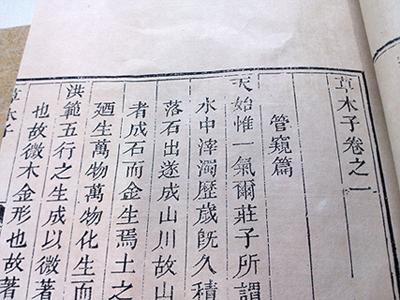 草木子卷之一
管窺篇
天始惟一氣爾莊子所謂
水中滓濁歷歲既久積
落石出遂成山川故山
者成石而金生焉土之
廼生萬物萬物化生而
洪範五行之生成以微著
也故微木金形也故著
草木子